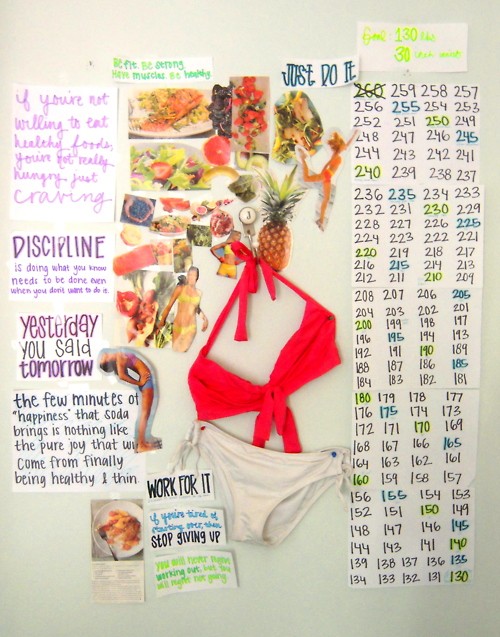 Be fit. Be strong.
Have muscles. Be healthy.
JUST DO IT
Goal 130 lbs
30
if you're not
willing to eat
healthy foods,
you're not really
hungry just
craving
DISCIPLINE
is doing what you know
needs to be done even
when you don't want to do it.
Yesterday
you said
tomorrow
the few minutes of
"happiness" that soda
brings is nothing like
the pure joy that wi
come from finally
being healthy & thin
WORK FOR IT
if you're tired of
starting over, then
STOP GIVING UP
you will never regret
working out, but you
will regret not going.
3
260 259 258 257
256 255 254 253
252 251 250 249
248 247 246 245
244 243 242 241
240 239 238 237
236 235 234 233
232 231 230 229
228 227 226 225
224 223 222 221
220 219 218 217
216 215 214 213
212 211 210 209
208 207 206 205
204 203 202 201
200 199 198 197
196 195 194 193
192 191 190 189
188 187 186 185
184 183 182 181
180 179 178 177
176 175 174 173
172 171 170 169
168 167 166 165
164 163 162 161
160 159 158 157
156 155 154 153
152 151 150 149
148 147 146 145
144 143 141 140
139 138 137 136 135
134 133 132 131 130